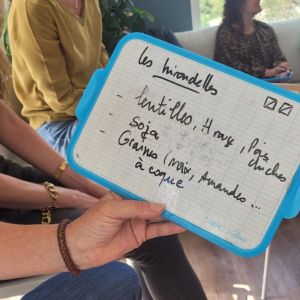 Les hirondelles
- lentilles, Houx, Pois chiches
- Soja
- Graines (noix, Amandes...
à coque